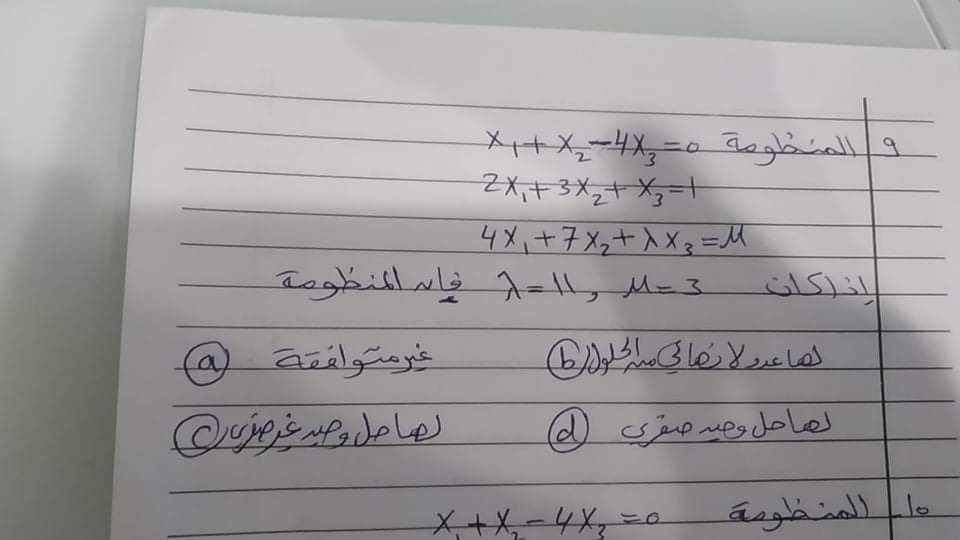 ٩ المنظومة x₁ + x₂ - 4x₃ = 0
2x₁ + 3x₂ + x₃ = 1
4x₁ + 7x₂ + λx₃ = μ
إذا كان λ = 11 , μ = 3 فإن المنظومة
(a) غير متوافقة (b) لها عدد لا نهائي من الحلول
(c) لها حل وحيد غير صفري (d) لها حل وحيد صفري
١٠ المنظومة x₁ + x₂ - 4x₃ = 0